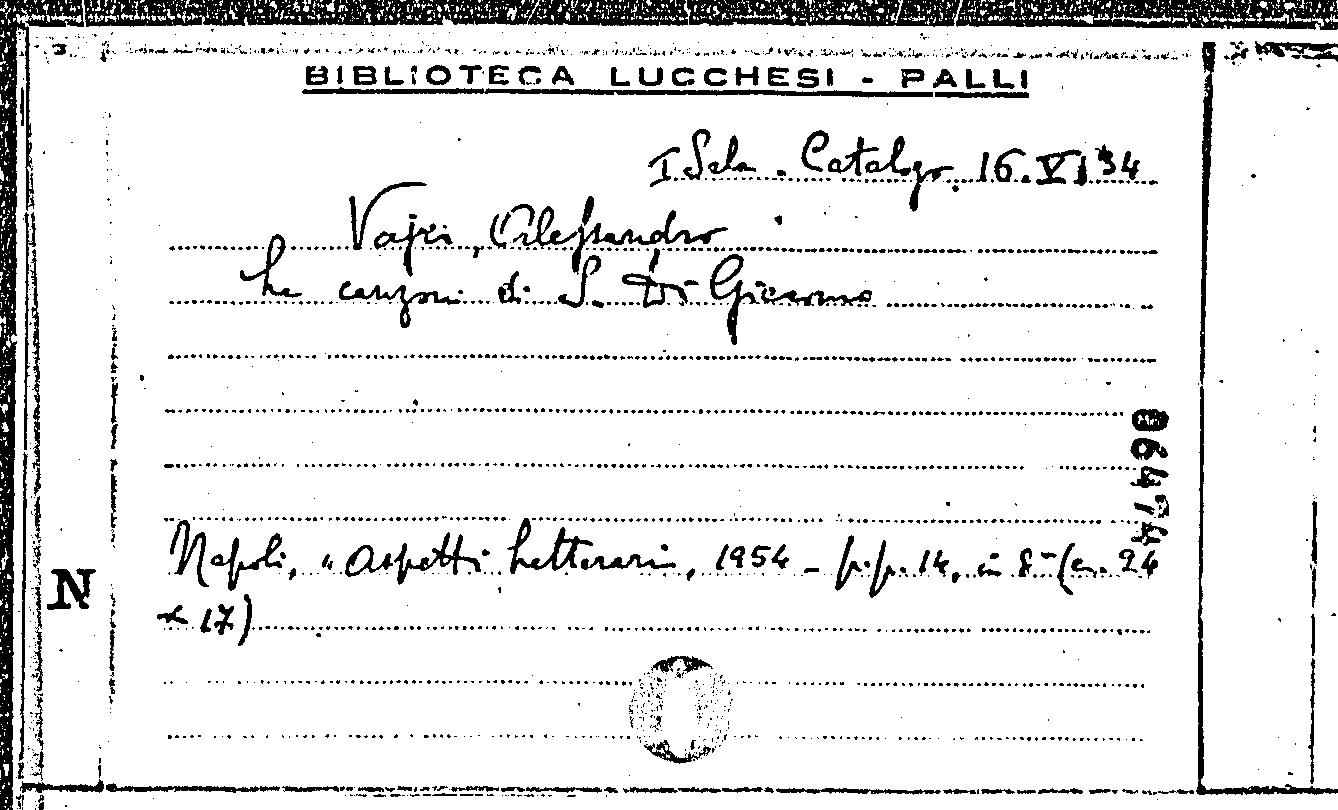 BIBLIOTECA LUCCHESI - PALLI
I Sala. Catalogo. 16. VI 34
Vajro, Alessandro
Le canzoni di S. Di Giacomo
86474
Napoli, "Aspetti Letterari", 1954 - p.p. 14, in 8° (cm. 24
x 17)
N